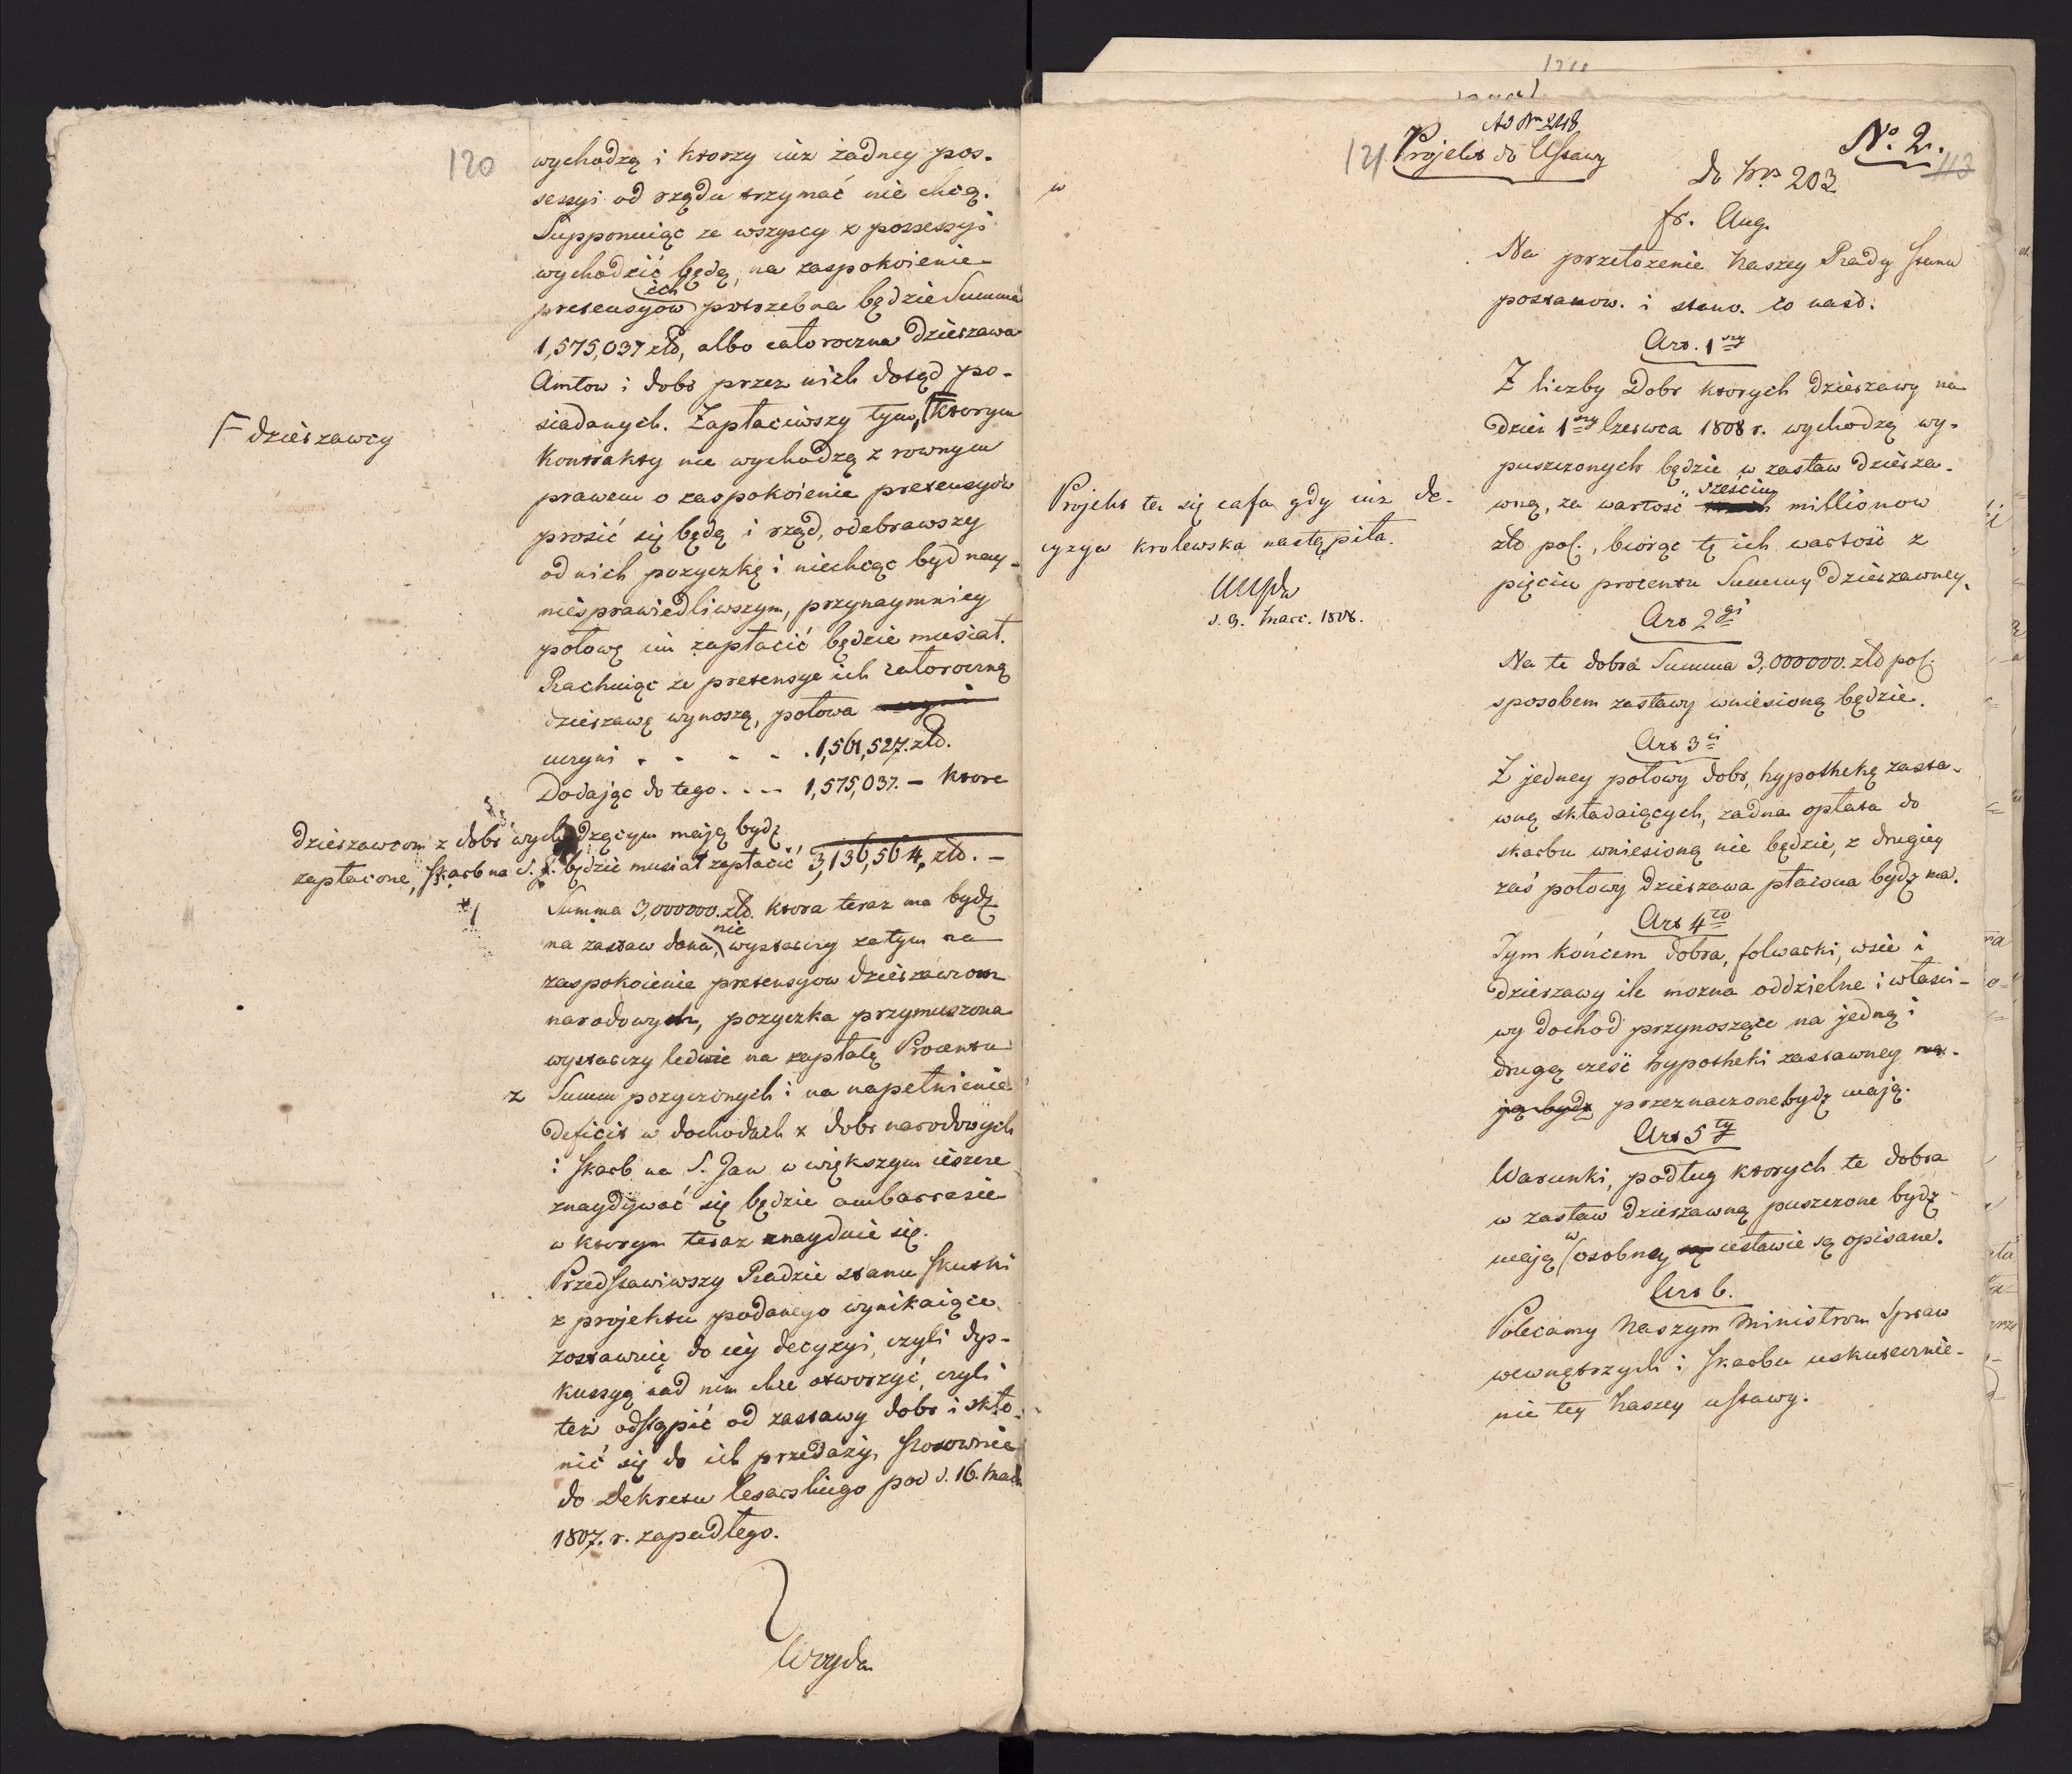 120
wychodzą i ktorzy iuż żadney pos-
sessyi od rządu trzymać nie chcą.
Supponuiąc ze wszyscy z possessyi
wychodzić będą, na zaspokoienie
ich
pretensyow potrzebna będzie Summa
1,575,037 złd, albo całoroczna dzierzawa
Amtow i dobr przez nich dotąd po-
siadanych. Zapłaciwszy tym, ktorym
F dzierzawcy
Kontrakty nie wychodzą z rownym
prawem o zaspokoienie pretensyow
prosić się będą i rząd, odebrawszy
od nich pozyczkę i niechcąc byd nay-
niesprawiedliwszym, przynaymniey
połowę im zapłacić będzie musiał.
Rachuiąc ze pretensye ich całoroczną
dzierzawę wynoszą, połowa
uczyni . . - - . 1,561,527. złd.
Dodając do tego . . -- 1,575,037. – ktore
dzierzawcom z dobr wychodzącym mają bydz
zapłacone, Skarb na S. J. będzie musiał zapłacić 3,136,564, złd. –
Summa 3,000000. złd. ktora teraz ma bydz
nie
na zastaw dana, wystarczy zatym na
zaspokoienie pretensyow dzierzawcom
narodowych, pozyczka przymuszona
wystarczy ledwie na zapłatę Procentu
z Summ pozyczonych i na napełnienie
deficit w dochodach z dobr narodowych
i Skarb na S. Jan w większym ieszcze
znaydywać się będzie ambarrasie
w ktorym teraz znayduie się.
Przedstawiwszy Radzie stanu skutki
z projektu podanego wynikaiące,
zostawuię do iey decyzyi, czyli dys-
kussyą nad nim chce otworzyć, czyli
też odstąpić od zastawy dobr i skło-
nić się do ich przedaży, stosownie
do dekretu Cesarskiego pod d. 16. Mar
1807. r. zapadłego.
121
Ad Nm 2418
Projekt do Ustawy
No. 2.
113
do Nro 203
fr. Aug.
Na przełożenie Naszey Rady Stanu
postanow. i stano. co nast.
Art. 1szy
Z liczby Dobr ktorych dzierzawy na
dzień 1szy Czerwca 1808 r. wychodzą wy-
puszczonych będzie w zastaw dzierza-
sześciu
wną, za wartość millionow
złd pol., biorąc tę ich wartość z
pięciu procentu Summy dzierzawney.
Art 2gi
Na te dobra Summa 3,000000. złd pol.
sposobem zastawy wniesioną będzie.
Art 3ci
Z jedney połowy dobr, hypothekę zasta-
wną składaiących, żadna opłata do
skarbu wniesioną nie będzie, z drugiey
zaś połowy dzierzawa płacona bydz ma.
Art 4to
Tym końcem dobra, folwarki, wsie i
dzierzawy ile mozna oddzielne i właści-
wy dochod przynoszące na jedną i
drugą cześć hypotheki zastawney ma-
ją bydz przeznaczone bydz mają.
Art 5ty
Warunki, podług ktorych te dobra
w zastaw dzierzawną puszczone bydz
w
mają osobney ustawie są opisane.
Art 6.
Polecamy Naszym Ministrom Spraw
wewnętrznych i Skarbu uskutecznie-
nie tey Naszey ustawy.
Projekt ten się cofa gdy iuż de-
cyzya krolewska nastąpiła.
d. 9. Marc. 1808.